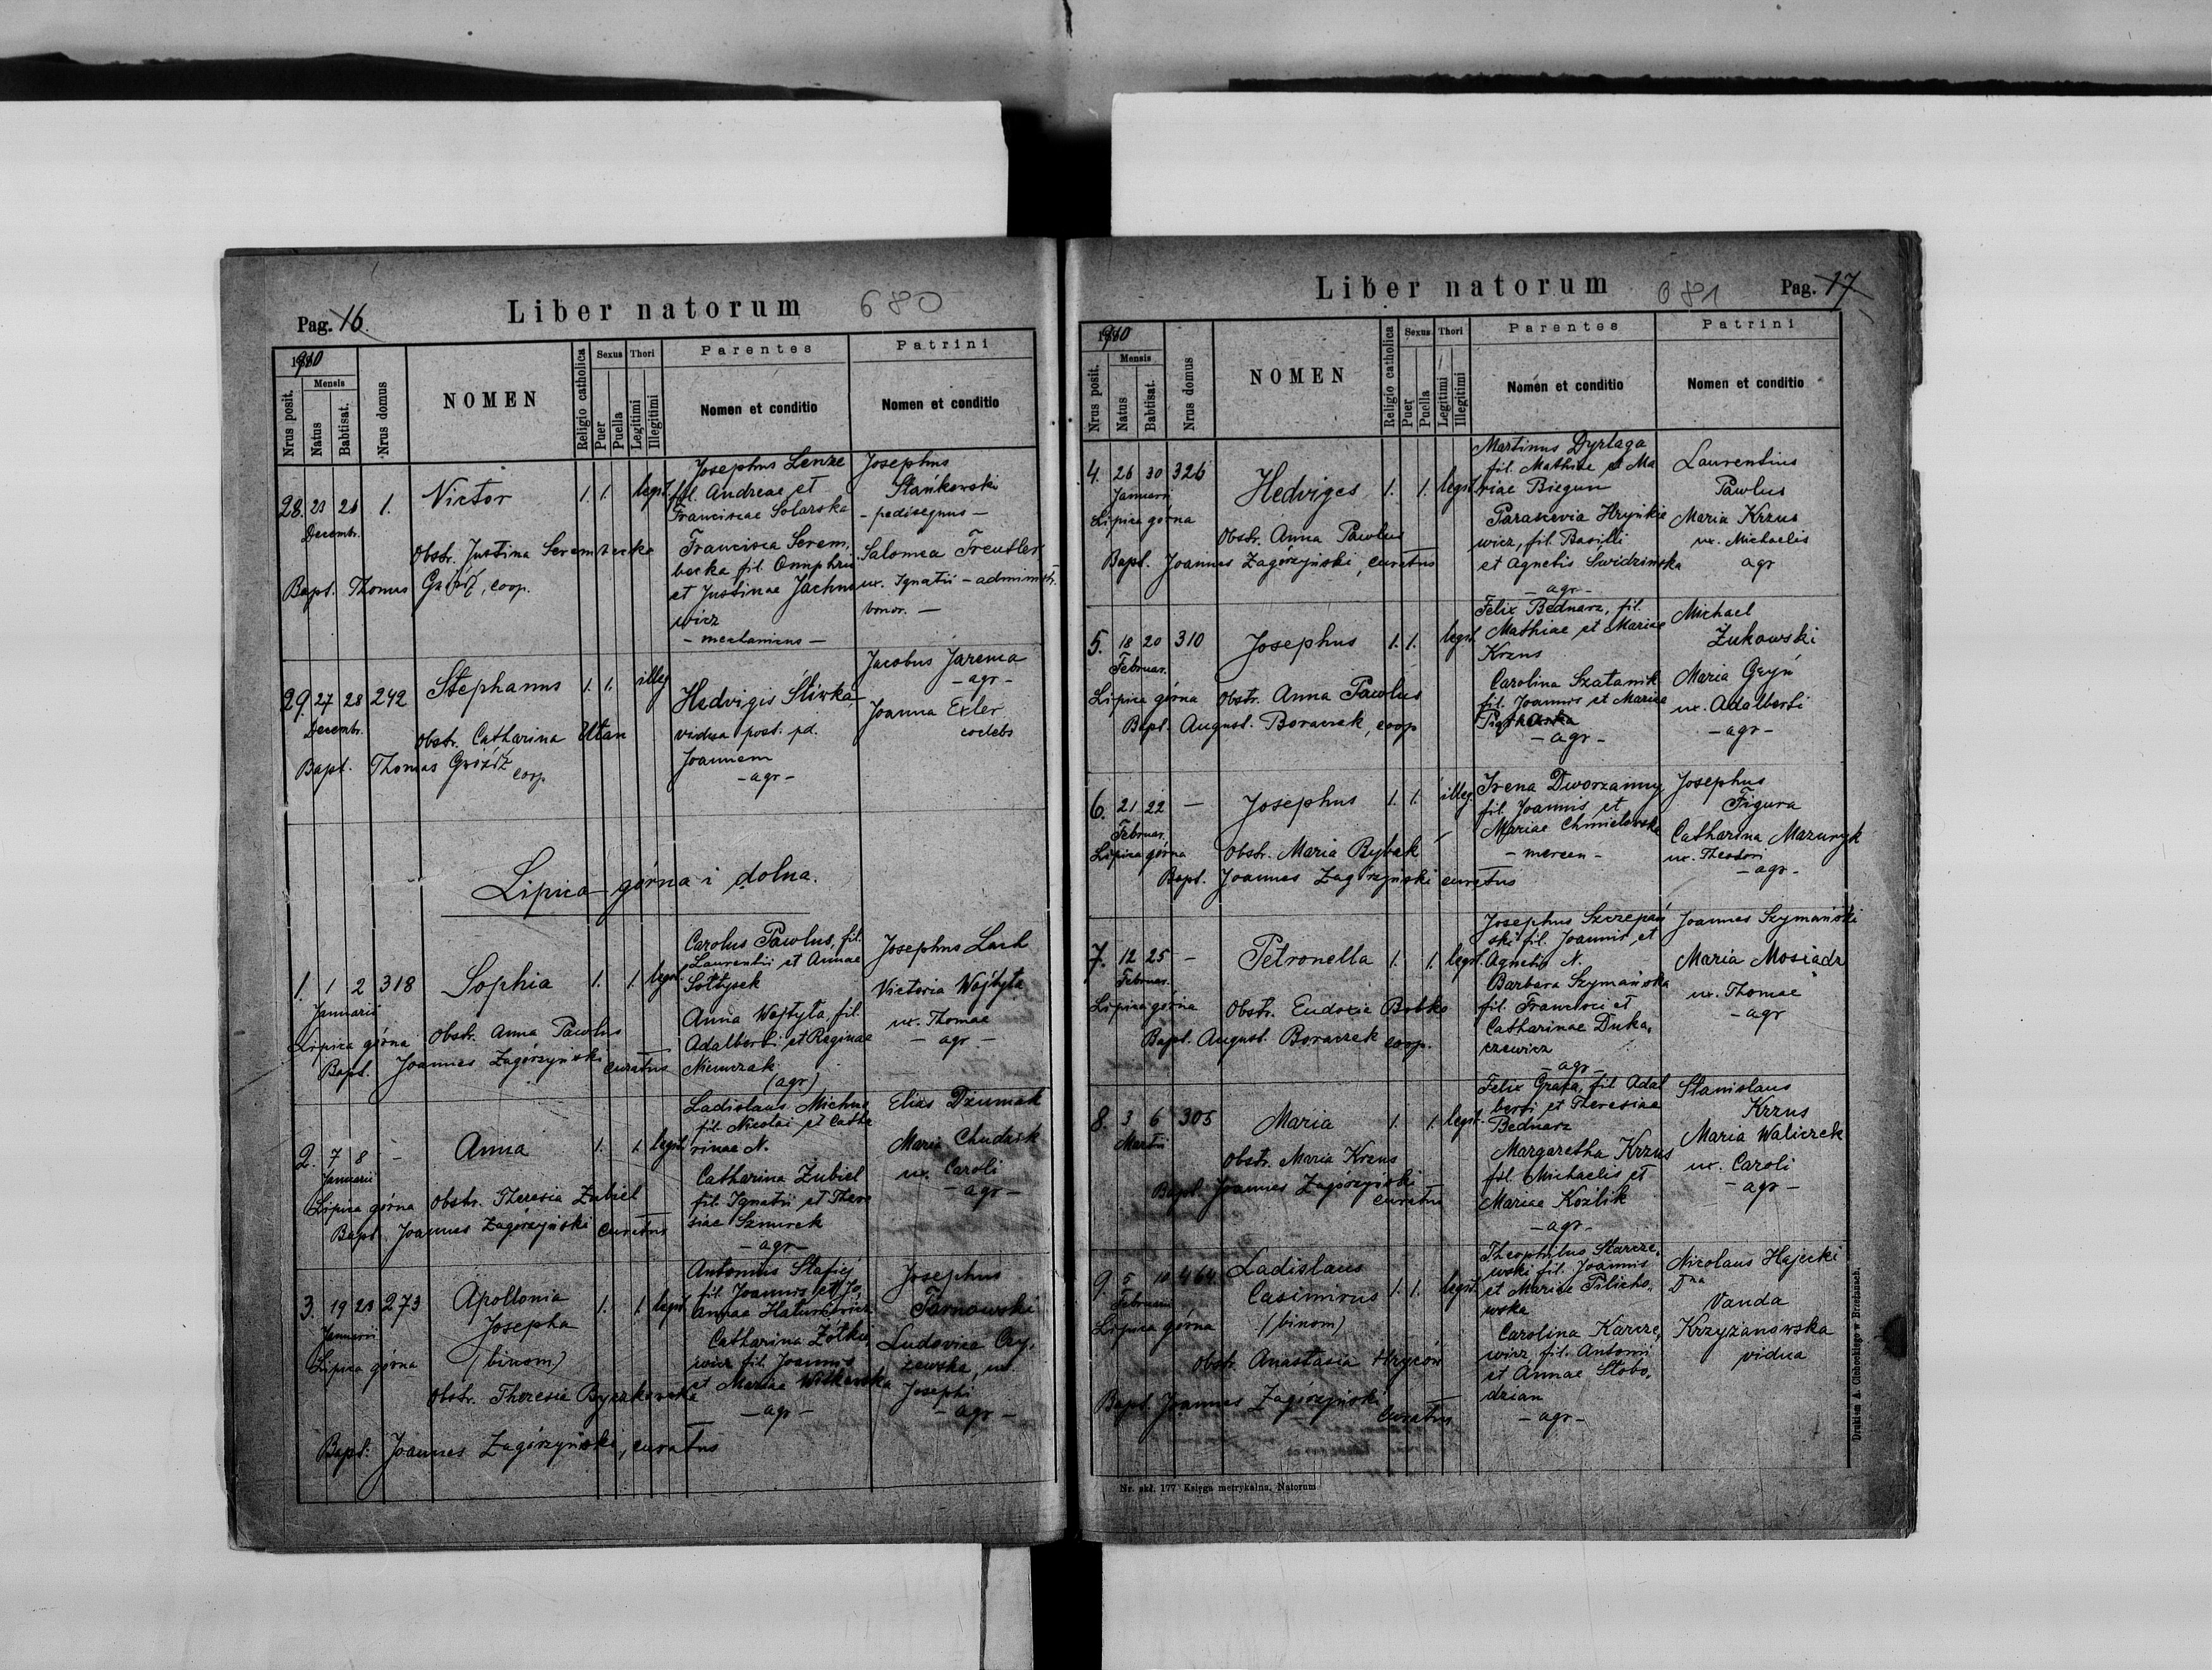 Pag. 16.
Liber natorum
680
1910
Nrus posit.
Mensis
Natus
Babtisat.
Nrus domus
NOMEN
Religio catholica
Sexus
Puer
Puella
Thori
Legitimi
Illegitimi
Parentes
Nomen et conditio
Patrini
Nomen et conditio
28. 23 26 1. Victor 1. 1. legit.
Decembr.
Obstr. Justina Serembecka
Bapt. Thomas Gróźdź, coop.
Josephus Lenze
fil. Andreae et
Franciscae Solarska
Francisca Serem,
becka fil. Onuphrii
et Justinae Jachno
wicz
- mechanicus -
Josephus
Stańkowski
- pedisequus -
Salomea Freutler
ux. Ignatii - administr.
bonor. -
29. 27 28 242 Stephanus 1. 1. illeg
Decembr.
Obstr. Catharina Ułan
Bapt. Thomas Gróźdź coop.
Hedvigis Śliwka
vidua post. pd.
Joannem
- agr -
Jacobus Jarema
- agr -
Joanna Exler
coelebs
Lipica górna i dolna.
1. 1 2 318 Sophia 1. 1. legit.
Januarii
Lipica górna Obstr. Anna Pawlus
Bapt. Joannes Zagórzyński curatus
Carolus Pawlus, fil.
Laurentii et Annae
Sołtysek
Anna Wojtyła, fil.
Adalberti et Reginae
Niemczak
(agr)
Josephus Lach
Victoria Wojtyła
ux. Thomae
- agr -
2. 7 8 - Anna 1. 1. legit.
Januarii
Lipica górna Obstr. Theresia Zubiel
Bapt. Joannes Zagórzyński curatus
Ladislaus Michna
fil. Nicolai et Catha
rinae N.
Catharina Zubiel
fil. Ignatii et There
siae Sznurek
- agr -
Elias Dziumak
Maria Chudzik
ux. Caroli
- agr -
3. 19 23 273 Apollonia 1. 1. legit.
Januarii
Josepha
Lipica górna (binom)
Obstr. Theresia Byczkowska
Bapt: Joannes Zagórzyński, curatus
Antonius Stafiej
fil. Joannis et Jo
annae Haturkiewicz
Catharina Żółkie
wicz fil. Joannis
et Mariae Witkowska
- agr -
Josephus
Tarnawski
Ludovica Czy,
żewska, ux.
Josephi
- agr -
Liber natorum
681
Pag. 17
1910
Nrus posit.
Mensis
Natus
Babtisat.
Nrus domus
NOMEN
Religio catholica
Sexus
Puer
Puella
Thori
Legitimi
Illegitimi
Parentes
Nomen et conditio
Patrini
Nomen et conditio
4. 26 30 326 Hedviges 1. 1. legit.
Januarii
Lipica górna
Obstr. Anna Pawlus
Bapt. Joannes Zagórzyński, curatus
Martinus Dyrlaga
fil. Mathiae et Ma
riae Biegun
Parascevia Hryńkie
wicz, fil. Basilli
et Agnetis Świdzińska
- agr -
Laurentius
Pawlus
Maria Krzus
ux. Michaelis
agr
5. 18 20 310 Josephus 1. 1. legit.
Februar.
Lipica górna Obstr. Anna Pawlus
Bapt. August. Boraczek, coop
Felix Bednarz, fil.
Mathiae et Mariae
Krzus
Carolina Szatanik
fil. Joannis et Mariae
- agr -
Michael
Żukowski
Maria Gryń
ux. Adalberti
- agr -
6. 21 22 - Josephus 1. 1. illeg.
Februar.
Lipica górna Obstr. Maria Rybak
Bapt. Joannes Zagórzyński curatus
Irena Dworzanny
fil. Joannis et
Mariae Chmielowska
- mercen -
Josephus
Figura
Catharina Mazuryk
ux. Theodori
- agr -
7. 12 25 - Petronella 1. 1. legit.
Februar.
Lipica górna Obstr. Eudoxia Bobko
Bapt. August. Boraczek coop.
Josephus Szczepań
ski fil. Joannis et
Agnetis N.
Barbara Szymańska
fil. Francisci et
Catharinae Duka,
czewicz
- agr -
Joannes Szymański
Maria Mosiądz
ux. Thomae
- agr
8. 3 6 305 Maria 1. 1. legit.
Martii
Obstr. Maria Krzus
Bapt. Joannes Zagórzyński
curatus
Felix Grafa, fil Adal
berti et Theresiae
Bednarz
Margaretha Krzus
fil. Michaelis et
Mariae Koźlik
- agr -
Stanislaus
Krzus
Maria Waliczek
ux. Caroli
- agr -
9. 5 10 464 Ladislaus 1. 1. legit.
Februarii Casimirus
Lipica górna (binom)
Obstr. Anastasia Hryców
Bapt Joannes Zagórzyński
curatus
Theophilus Starcze,
wski fil. Joannis
et Mariae Pilicho,
wska
Carolina Karcze,
wicz fil. Antonii
et Annae Słobo,
dzian
- agr -
Nicolaus Hajecki
Dna
Vanda
Krzyżanowska
vidua
Nr. skł. 177 Księga metrykalna. Natorum
Drukiem A. Cichockiego w Brzeżanach.